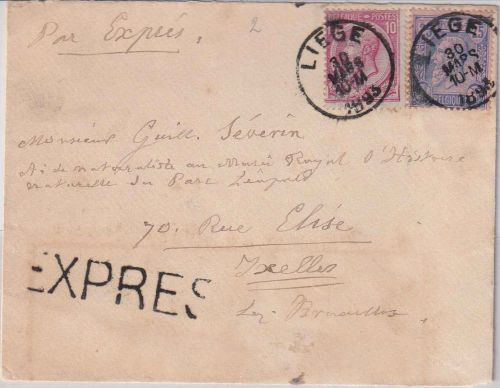 Par Exprès
2
BELGIQUE POSTES
10
25
BELGIQUE
LIEGE
30
MARS
10-M
1893
LIEGE
30
MARS
10-M
1893
Monsieur Guill. Sévérin
Aide naturaliste au Musée Royal d'Histoire
naturelle du Parc Léopold
70, Rue Elise
Ixelles
Lez Bruxelles
EXPRES